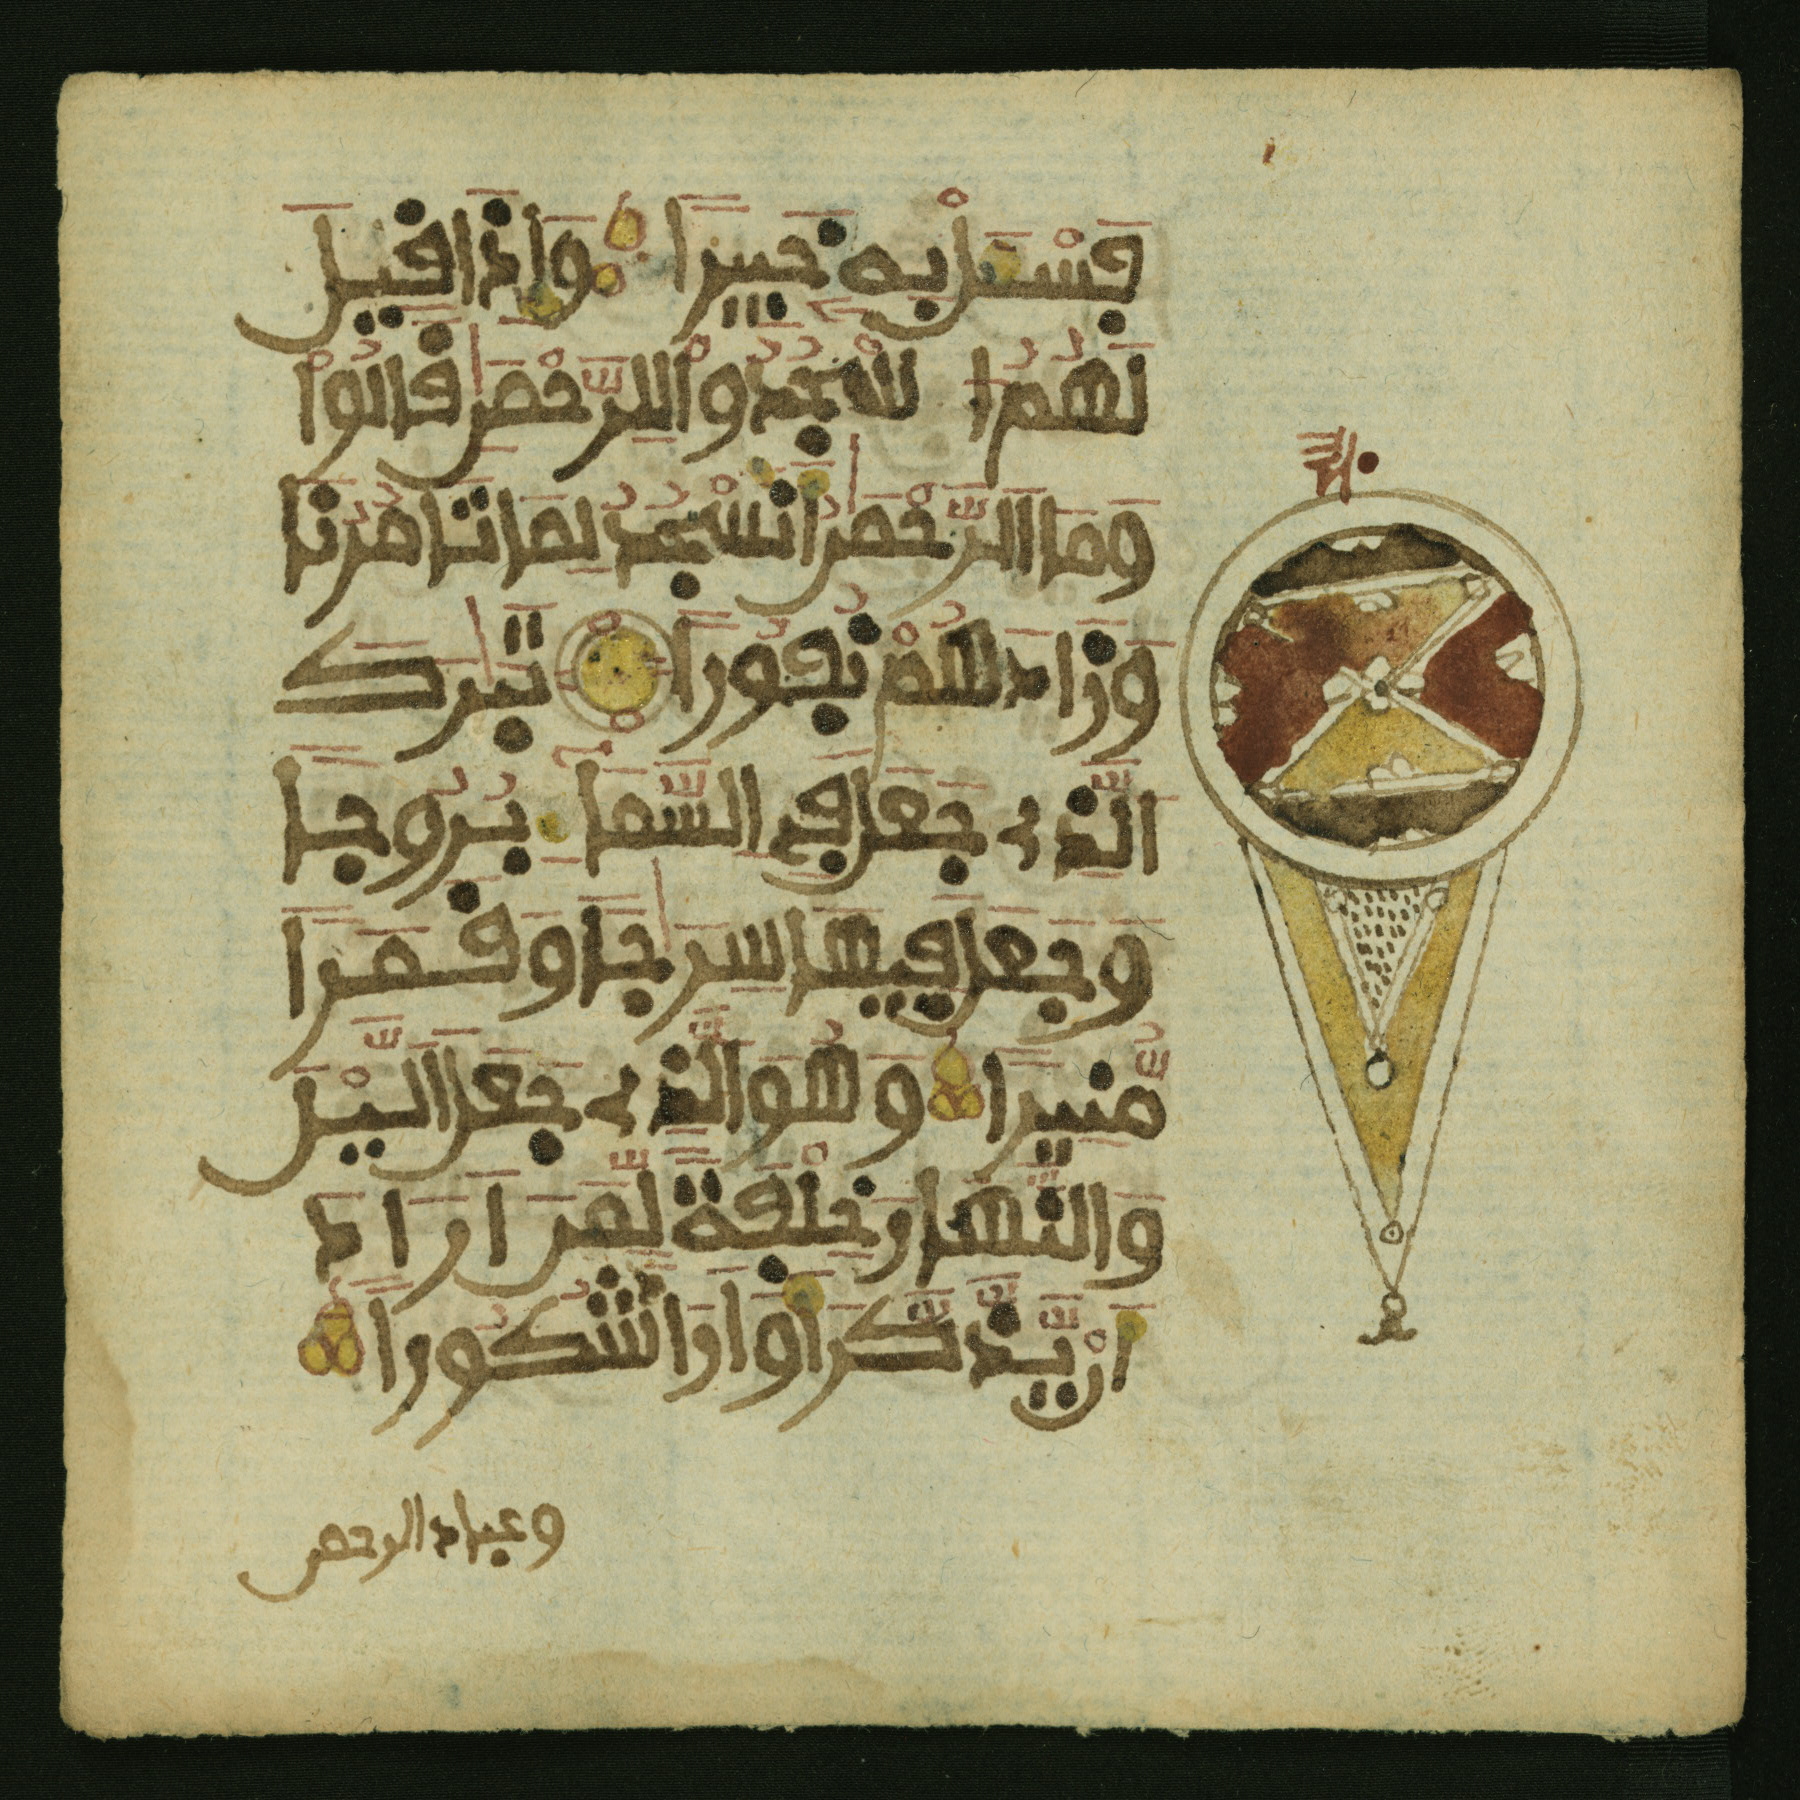 فَسْـَٔلْ بِهِ خَبِيرًا وَإِذَا قِيلَ
لَهُمُ اسْجُدُوا لِلرَّحْمَٰنِ قَالُوا
وَمَا الرَّحْمَٰنُ أَنَسْجُدُ لِمَا تَامُرُنَا
وَزَادَهُمْ نُفُورًا تَبَٰرَكَ
الَّذِي جَعَلَ فِي السَّمَاءِ بُرُوجًا
وَجَعَلَ فِيهَا سِرَٰجًا وَقَمَرًا
مُّنِيرًا وَهُوَ الَّذِي جَعَلَ الَّيْلَ
وَالنَّهَارَ خِلْفَةً لِّمَنْ أَرَادَ
أَنْ يَّذَّكَّرَ أَوْ أَرَادَ شُكُورًا
وعباد الرحمن